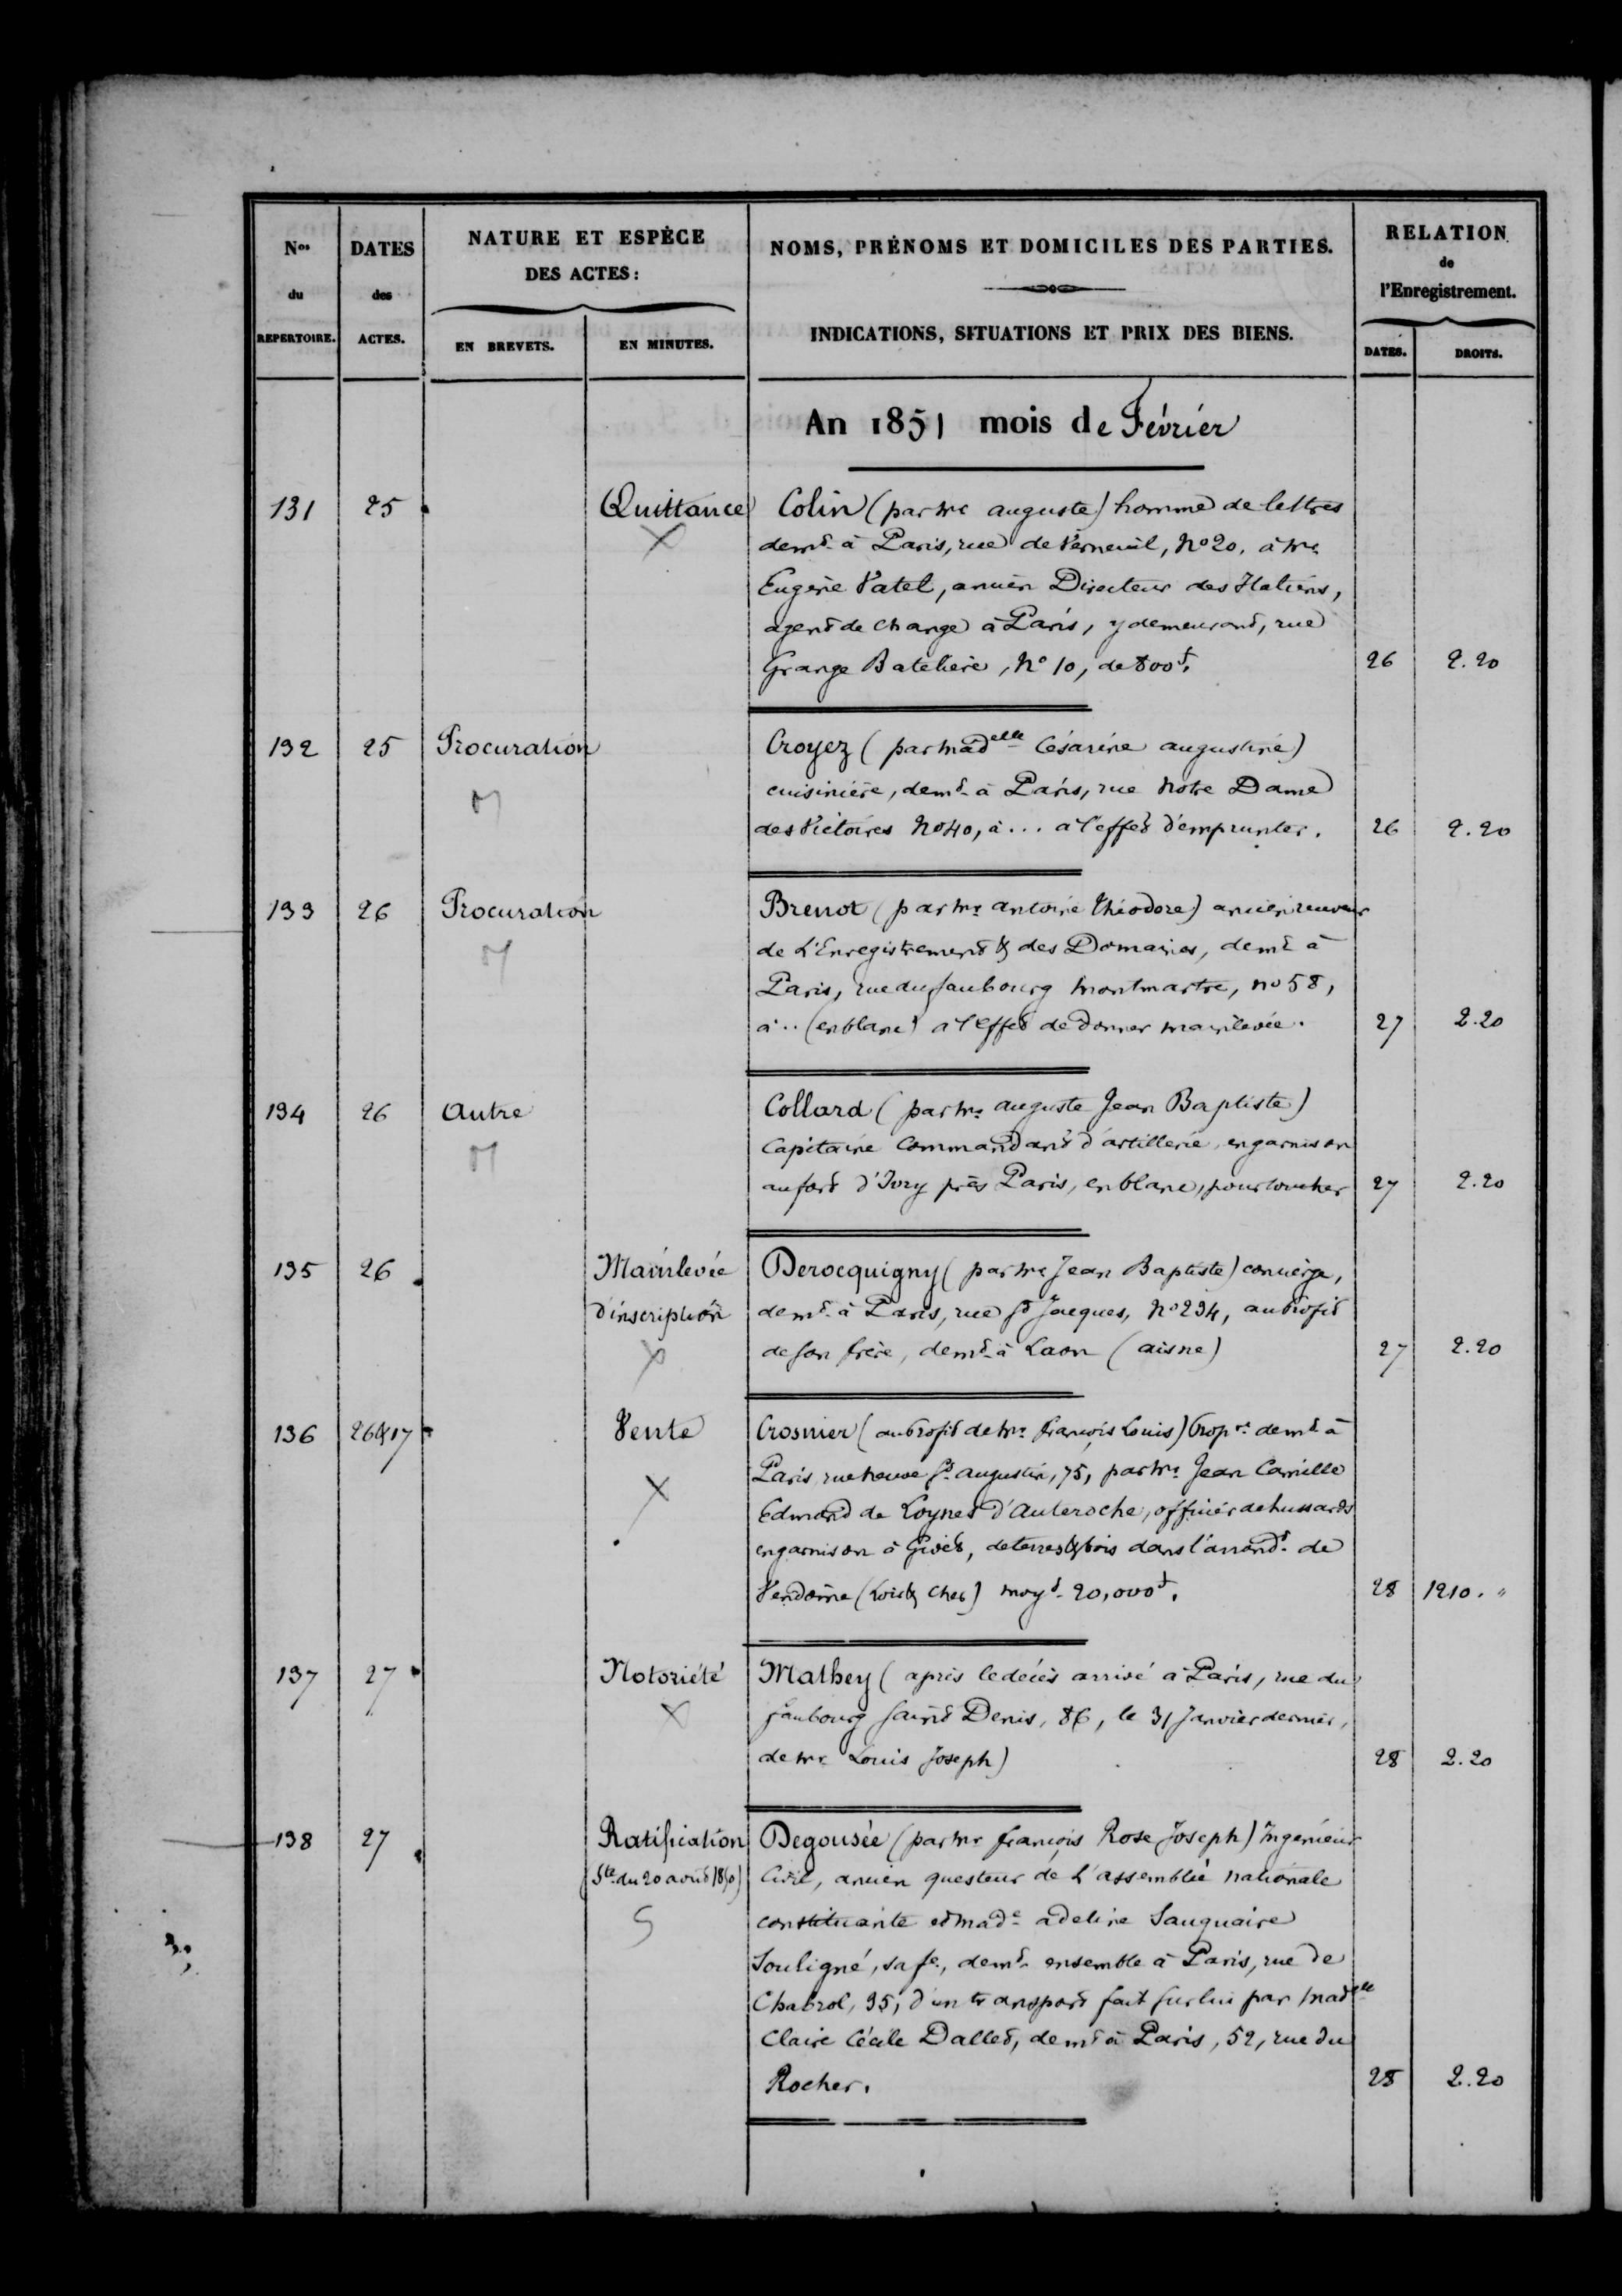 Nos du REPERTOIRE. DATES des ACTES. NATURE ET ESPÈCE DES ACTES: EN BREVETS. EN MINUTES. NOMS, PRÉNOMS ET DOMICILES DES PARTIES. INDICATIONS, SITUATIONS ET PRIX DES BIENS. RELATION de l'Enregistrement. DATES. DROITS.
An 1851 mois de Février
131 25 Quittance Colin (par Mr auguste) homme de lettres
demt à Paris, rue de Verneuil, No 20, à Mr
Eugène Vatel, ancien Directeur des Italiens,
agent de change à Paris, y demeurant, rue
Grange Batelière, No 10, de 800f. 26 2.20
132 25 Procuration Croyez (par Madelle Césarine augustine)
M cuisinière, demt à Paris, rue Notre Dame
des Victoires No 40, à... à l'effet d'emprunter. 26 2.20
133 26 Procuration Brenot (par Mr antoine Théodore) ancien receveur
M de L'Enregistrement & des Domaines, demt à
Paris, rue du faubourg Montmartre, no 58,
à.. (en blanc) à l'Effet de donner mainlevée. 27 2.20
134 26 Autre Collard (par Mr auguste Jean Baptiste)
M Capitaine Commandant d'artillerie, en garnison
au fort d'Ivry près Paris, en blanc, pour toucher 27 2.20
135 26 Mainlevée Derocquigny (par Mr Jean Baptiste) concierge,
d'inscription demt à Paris, rue St Jacques, No 234, au Profit
de son frère, demt à Laon (aisne) 27 2.20
136 26 & 17 Vente Crosnier (au Profit de Mr françois Louis) Propre demt à
Paris rue neuve St augustin, 75, par Mr Jean Camille
Edmond de Loynes d'Auteroche, officier de hussards
en garnison à Givet, de terres & bois dans l'arrondt de
Vendôme (Loir & Cher) moyt 20,000f. 28 1210. "
137 27 Notoriété Mathey (après le décès arrivé à Paris, rue du
faubourg Saint Denis, 86, le 31 Janvier dernier,
de Mr Louis Joseph) 28 2.20
138 27 Ratification Degousée (par Mr françois Rose Joseph) Ingénieur
(Ste du 20 août 1850) Civil, ancien questeur de L'assemblée nationale
constituante et Made adeline Sauquaire
Souligné, sa fe, demt ensemble à Paris, rue de
Chabrol, 35, d'un transport fait sur lui par Madelle
Claire Cécile Dallet, demt à Paris, 52, rue du
Rocher. 28 2.20